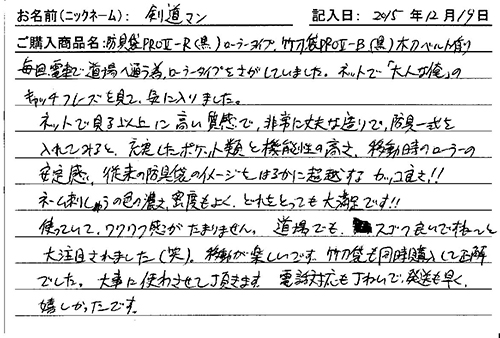 お名前(ニックネーム): 剣道マン 記入日: 2015年12月19日
ご購入商品名: 防具袋PROⅡ-R(黒)ローラータイプ、竹刀袋PROⅡ-B(黒)木刀ベルト付
毎回電車で道場へ通う為、ローラータイプをさがしていました。ネットで「大人な俺」の
キャッチフレーズを見て、気に入りました。
ネットで見る以上に高い質感で、非常に丈夫な造りで、防具一式を
入れてみると、充実したポケット類と機能性の高さ、移動時のローラーの
安定感、従来の防具袋のイメージをはるかに超越するカッコ良さ!!
ネーム刺しゅうの色の濃さ、密度もよく、どれをとっても大満足です!!
使っていて、ワクワク感がたまりません。道場でも、スゴク良いで
大注目されました(笑)。移動が楽しいです。竹刀袋も同時購入して正解
でした。大事に使わさせて頂きます。電話対応も丁ねいで、発送も早く、
嬉しかったです。